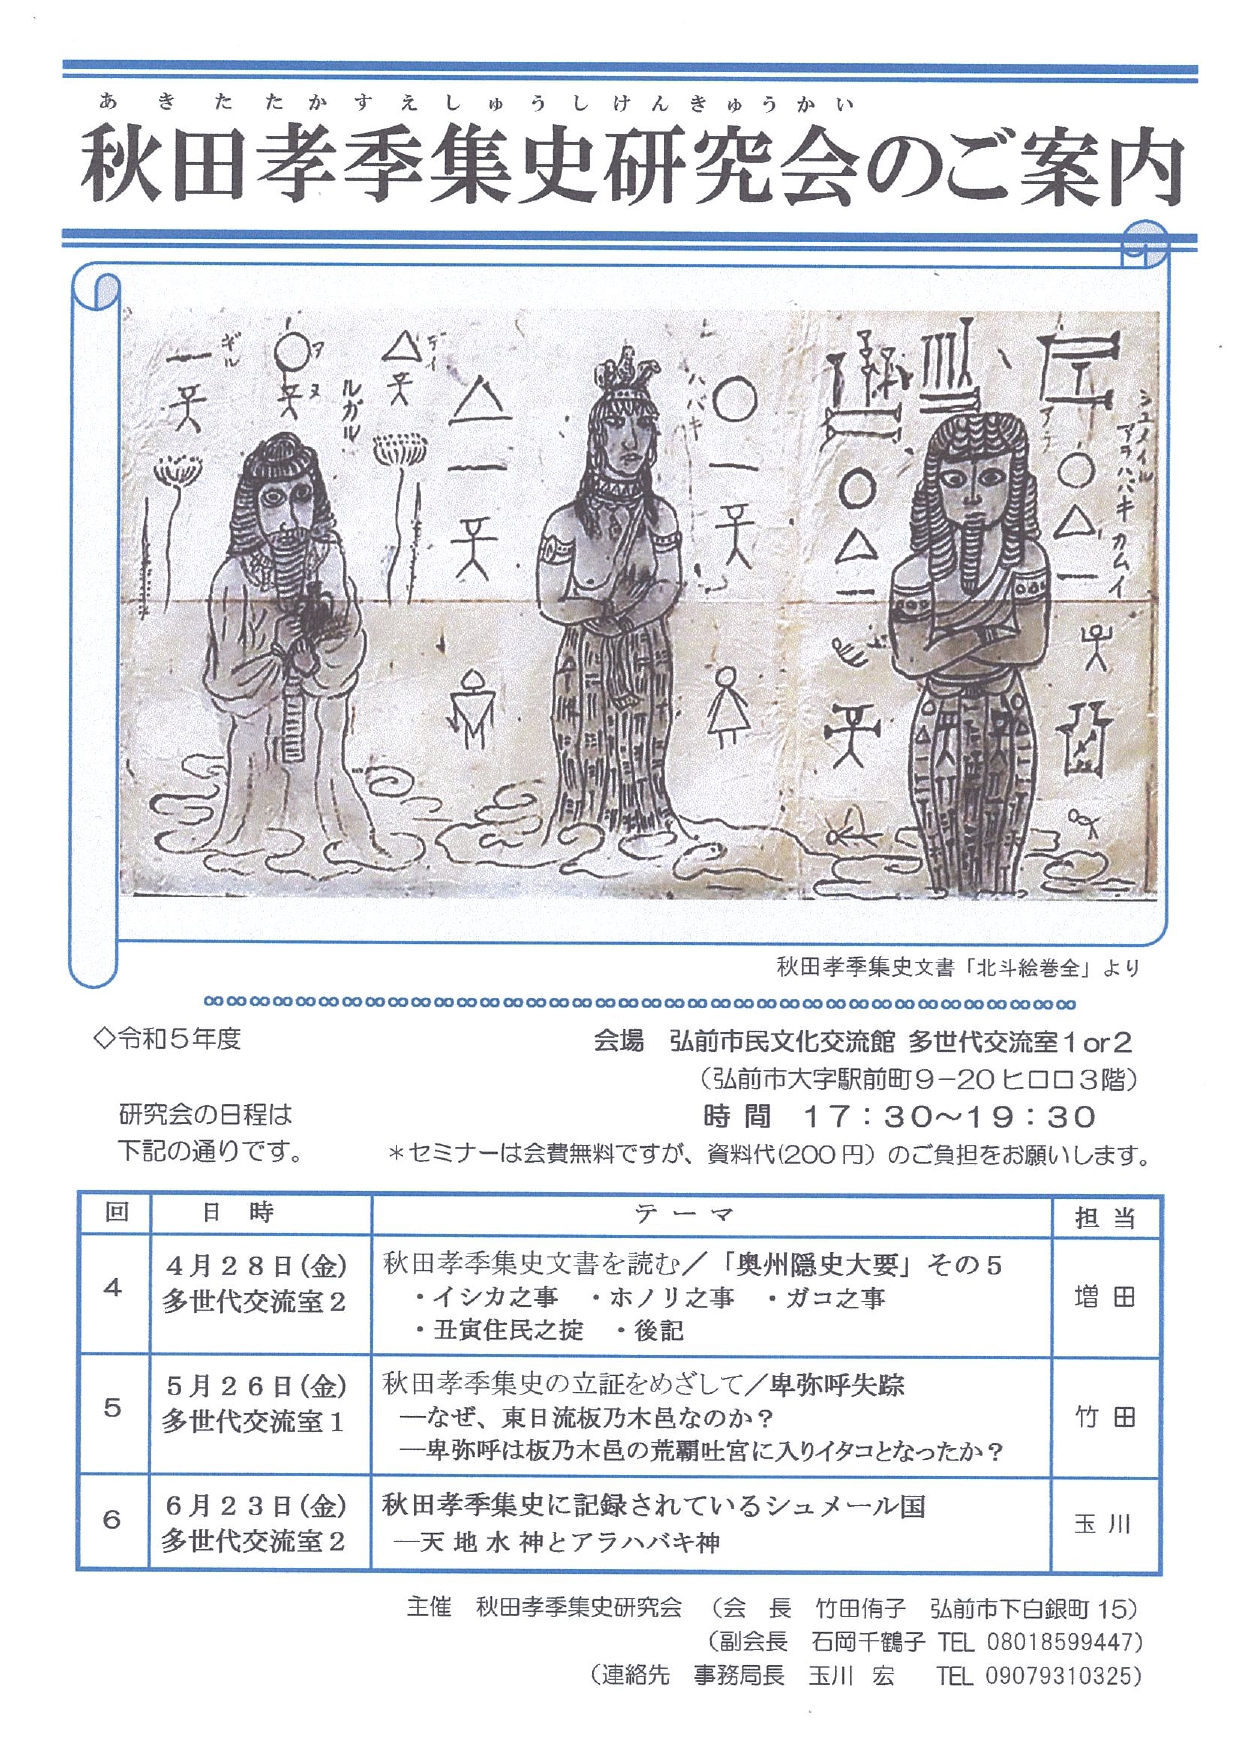 あきたたかすえしゅうしけんきゅうかい
秋田孝季集史研究会のご案内
ギル
アヌ
ルガル
ディ
ハバキ
シュメイル
アラハバキカムイ
秋田孝季集史文書「北斗絵巻全」より
∞∞∞∞∞∞∞∞∞∞∞∞∞∞∞∞∞∞∞∞∞∞∞∞∞∞∞∞∞∞∞∞∞∞∞∞∞∞
◇令和5年度
会場 弘前市民文化交流館 多世代交流室1or2
（弘前市大字駅前町9-20ヒロロ3階）
研究会の日程は
下記の通りです。
時間 17：30～19：30
＊セミナーは会費無料ですが、資料代(200円）のご負担をお願いします。
回 日時 テーマ 担当
4
4月28日(金)
多世代交流室2
秋田孝季集史文書を読む／「奥州隠史大要」その5
・イシカ之事 ・ホノリ之事 ・ガコ之事
・丑寅住民之掟 ・後記
増田
5
5月26日(金)
多世代交流室1
秋田孝季集史の立証をめざして／卑弥呼失踪
―なぜ、東日流板乃木邑なのか？
―卑弥呼は板乃木邑の荒覇吐宮に入りイタコとなったか？
竹田
6
6月23日(金)
多世代交流室2
秋田孝季集史に記録されているシュメール国
―天地水神とアラハバキ神
玉川
主催 秋田孝季集史研究会 （会長 竹田侑子 弘前市下白銀町15）
（副会長 石岡千鶴子 TEL 08018599447）
（連絡先 事務局長 玉川 宏 TEL 09079310325）